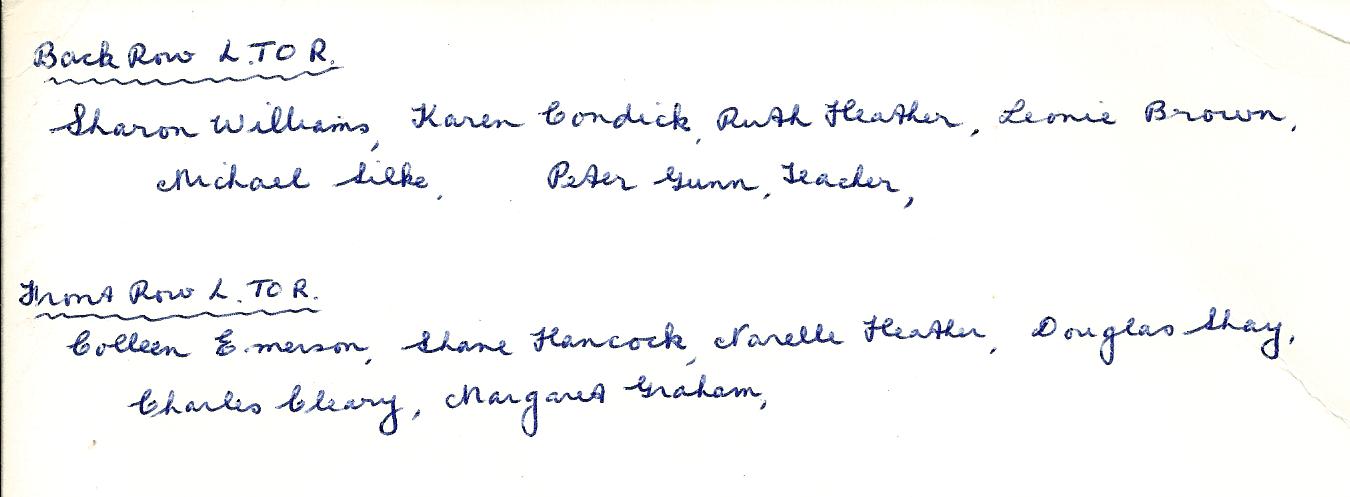 Back Row L. TO R.
Sharon Williams, Karen Condick, Ruth Heather, Leonie Brown,
Michael Silke, Peter Gunn, Teacher,
Front Row L. TO R.
Colleen Emerson, Shane Hancock, Narelle Heather, Douglas Shay,
Charles Cleary, Margaret Graham,